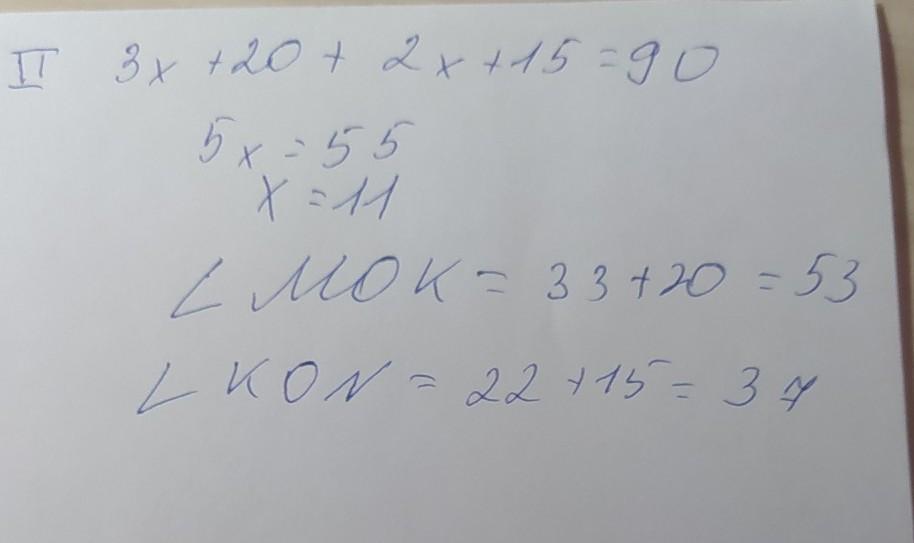 II 3x + 20 + 2x + 15 = 90
5x = 55
x = 11
∠ MOK = 33 + 20 = 53
∠ KON = 22 + 15 = 37